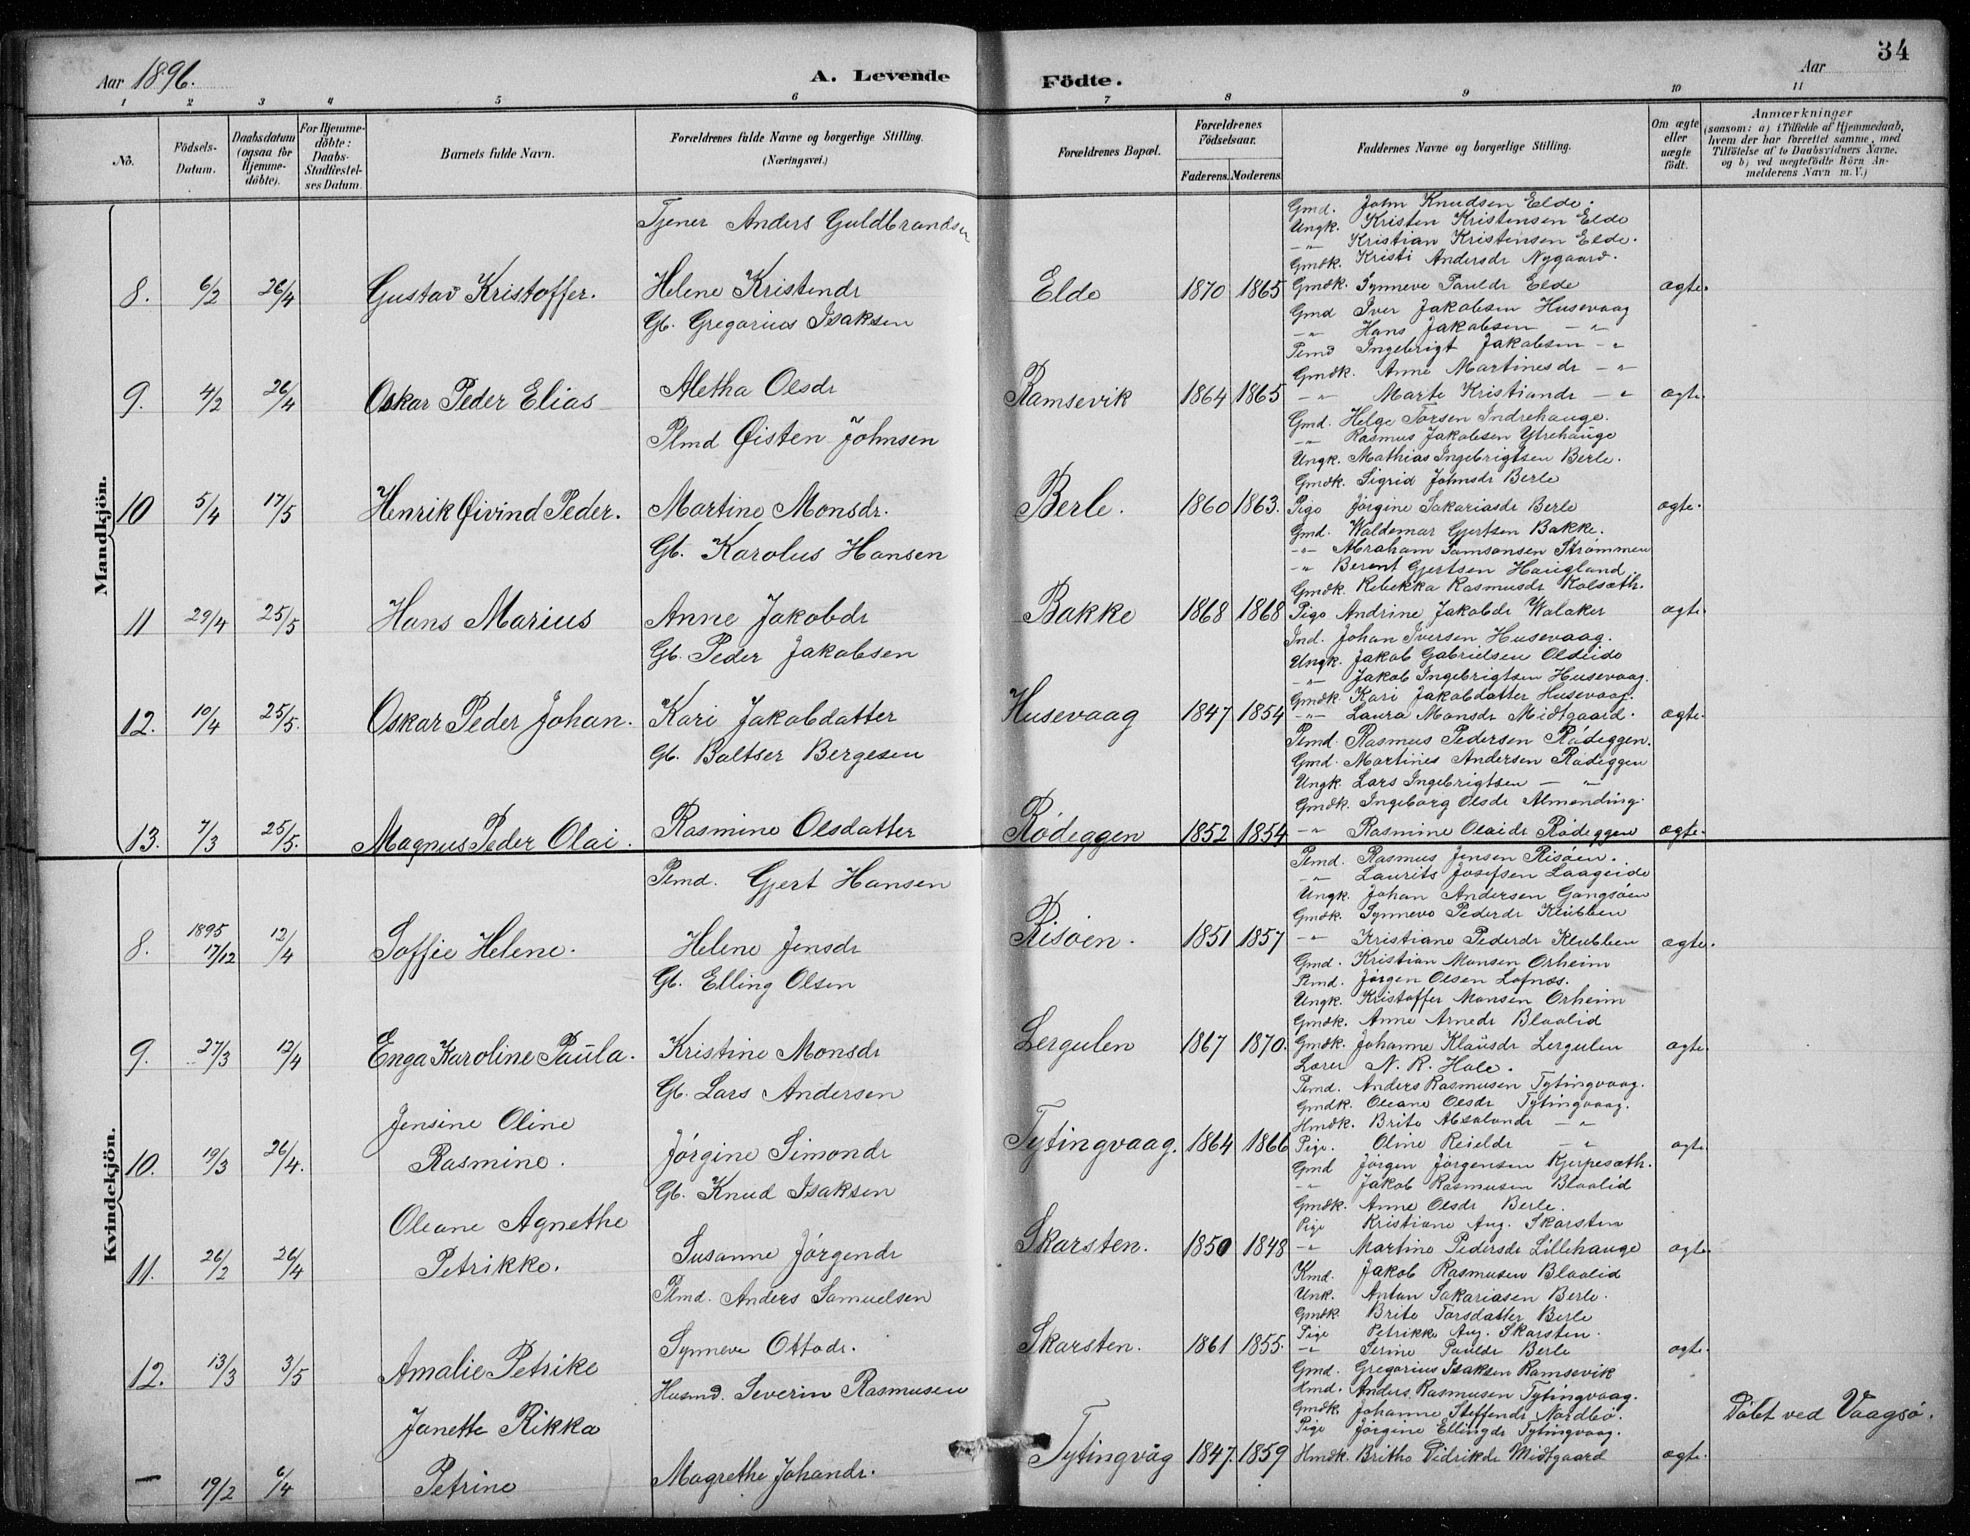 34
Aar 1896.
A. Levende Födte.
Aar
1 2 3 4 5 6 7 8 9 10 11
No.
Födsels-Datum.
Daabsdatum (ogsaa for Hjemmedöbte).
For Hjemmedöbte: Daabs-Stadfæstelses Datum.
Barnets fulde Navn.
Forældrenes fulde Navne og borgerlige Stilling.
(Næringsvei.)
Forældrenes Bopæl.
Forældrenes Födselsaar.
Faderens. Moderens.
Faddernes Navne og borgerlige Stilling.
Om ægte eller uægte födt.
Anmærkninger
(saasom: a) i Tilfælde af Hjemmedaab, hvem der har forrettet samme, med Tilföielse af to Daabsvidners Navne. og b) ved uegtefödte Börn Anmelderens Navn m.V.)
Mandkjön.
8. 6/2 26/4 Gustav Kristoffer.
Tjener Anders Guldbrandsen
Helene Kristendr
Elde 1870 1865
Gmd. John Knudsen Elde.
Ungk. Kristen Kristensen Elde
-"- Kristian Kristensen Elde.
Gmdk. Kristi Andersdr Nygaard.
Gmdk. Synneve Pauldr Elde
ægte.
9. 4/2 26/4 Oskar Peder Elias
Gb. Gregorius Isaksen
Aletha Olsdr
Ramsevik 1864 1865
Gmd Iver Jakobsen Husevaag
-"- Hans Jakobsen -"-
Plmd Ingebrigt Jakobsen -"-
Gmdk. Anne Martinesdr -"-
-"- Marte Kristiandr -"-
ægte.
10 5/4 17/5 Henrik Øivind Peder.
Plmd Øisten Johnsen
Martine Monsdr.
Berle. 1860 1863.
Gmd. Helge Torsen Indrehauge.
-"- Rasmus Jakobsen Ytrehauge
Ungk. Mathias Ingebrigtsen Berle.
Gmdk. Sigrid Johnsdr Berle
Pige Jørgine Sakariasdr Berle
ægte.
11 29/4 25/5 Hans Marius
Gb. Karolus Hansen
Anne Jakobdr
Bakke 1868 1868
Gmd. Waldemar Gjertsen Bakke.
-"- Abraham Samsonsen Strømmen
-"- Berent Gjertsen Haugland.
Gmdk. Rebekka Rasmusdr Kolsæth.
Pige Andrine Jakobdr Walaker
ægte.
12. 10/4 25/5. Oskar Peder Johan.
Gb. Peder Jakobsen
Kari Jakobdatter
Husevaag 1847 1854
Ind. Johan Iversen Husevaag.
Ungk. Jakob Gabrielsen Oldeide
-"- Jakob Ingebrigtsen Husevaag.
Gmdk. Kari Jakobdatter Husevaag.
-"- Laura Monsdr Midtgaard.
ægte.
13. 7/3 25/5. Magnus Peder Olai.
Gb. Baltser Bergesen
Rasmine Olsdatter
Rødeggen 1852 1854
Plmd. Rasmus Pedersen Rødeggen.
Gmd. Martines Andersen Rødeggen
Ungk. Lars Ingebrigtsen -"-
Gmdk. Ingeborg Olsdr Almending.
-"- Rasmine Olaidr Rødeggen
ægte.
Kvindekjön.
8. 1895 17/12 12/4 Soffie Helene.
Plmd. Gjert Hansen
Helene Jensdr
Risøen. 1851 1857
Plmd. Rasmus Jensen Risøen.
-"- Laurits Josefsen Laageide
Ungk. Johan Andersen Gangsøen
Gmdk. Synneve Pederdr Klubben
-"- Kristiane Pederdr Klubben
ægte.
9. 27/3 12/4 Enga Karoline Paula.
Gb. Elling Olsen
Kristine Monsdr
Lergulen 1867 1870.
Gmd. Kristian Monsen Orheim
Plmd. Jørgen Olsen Lofnæs.
Ungk. Kristoffer Monsen Orheim
Gmdk. Anne Arnedr Blaalid
Gmdk. Johanne Klausdr Lergulen
ægte.
10. 19/3 26/4. Jensine Oline
Rasmine.
Gb. Lars Andersen
Jørgine Simondr
Tytingvaag. 1864 1866
Lærer N. R. Hole.
Plmd. Anders Rasmusen Tytingvaag.
Gmdk. Oleane Olsdr Tytingvaag.
Hmdk. Brite Absalondr -"-
Pige. Oline Reieldr -"-
ægte.
11. 26/2 26/4 Oleane Agnethe
Petrikke.
Gb. Knud Isaksen
Susanne Jørgendr
Skarsten. 1850 1848
Gmd Jørgen Jørgensen Kjerpesæth.
-"- Jakob Rasmusen Blaalid
Gmdk. Anne Olsdr Berle.
Pige Kristiane Aug. Skarsten
-"- Martine Pedersdr Lillehauge
ægte.
12. 13/3 3/5 Amalie Petrike
Plmd. Anders Samuelsen
Synneve Ottodr.
Skarsten. 1861 1855.
Kmd. Jakob Rasmusen Blaalid
Unk. Anton Sakariasen Berle.
Gmdk. Brite Torsdatter Berle
Pige Petrikke Aug. Skarsten.
-"- Serine Pauldr Berle
ægte.
— 19/2 6/4 Janette Rikka
Petrine
Husmd. Severin Rasmusen
Magrethe Johandr.
Tytingvåg 1847. 1859
Gmd. Gregorius Isaksen Ramsevik
Hmd. Anders Rasmusen Tytingvaag.
Gmdk. Johanne Steffendr Nordbø.
Pige Jørgine Ellingdr Tytingvaag.
Hmdk. Britha Didrikdr Midtgaard
ægte.
Døbt ved Vaagsø.